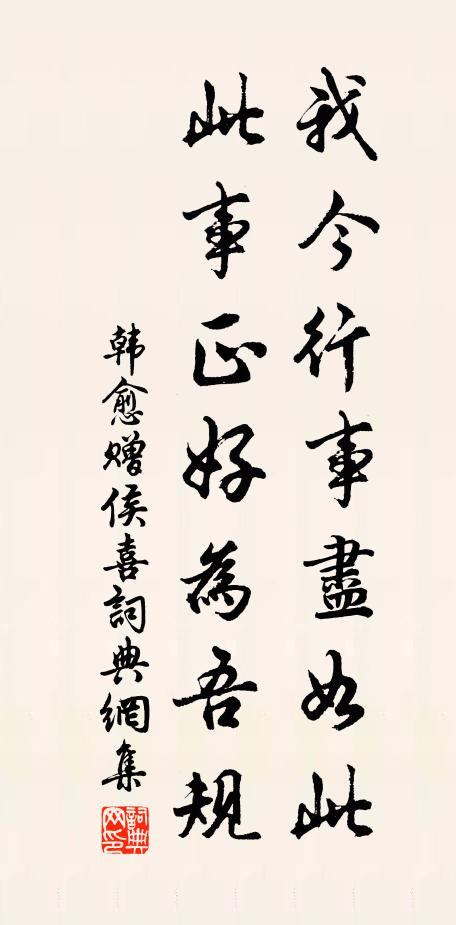 我今行事盡如此
此事正好為吾規
韩愈赠侯喜詞典網集
詞典網印